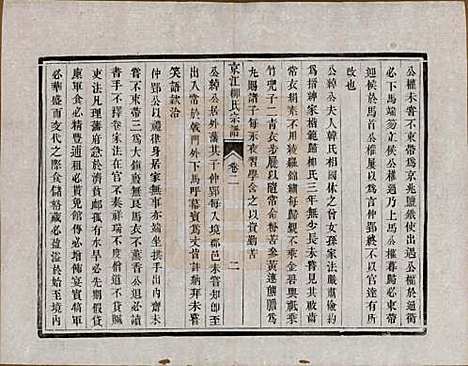 公權未嘗不束帶爲京兆鹽鐵使出遇公權於通衢
必下馬端笏立候公權過乃上馬公權暮歸必束帶
迎候於馬首公權屢以爲言仲郢終不以官達有所
改也
公綽公夫人韓氏相國休之曾女孫家法嚴肅儉約
爲搢紳家楷範歸柳氏三年無少長未嘗見其啟齒
常衣絹素不用綾羅錦繡每歸覲不乘金碧輿祗乘
竹兜子二青衣步屣以隨常命粉苦參黃連熊膽和
丸賜諸子每永夜習學含之以資勤苦
京江柳氏宗譜 卷二 二
公綽公居外藩其子仲郢每入境郡邑未嘗知卽至
出入常於戟門外下馬呼幕賓爲丈皆許納拜未嘗
笑語款洽
仲郢公以禮律身居家無事亦端坐拱手出內齋未
嘗不束帶三爲大鎮廏無良馬衣不薰香公退必讀
書手不釋卷家法在官不奏祥瑞不度僧道不貸贓
吏法凡理藩府急於濟貧卹孤有水旱必先期假貸
廩軍食必精豐逋租必貰免館傳必增飾宴賓犒軍
必華盛而交代之際食儲帑藏必盈溢於始至境內